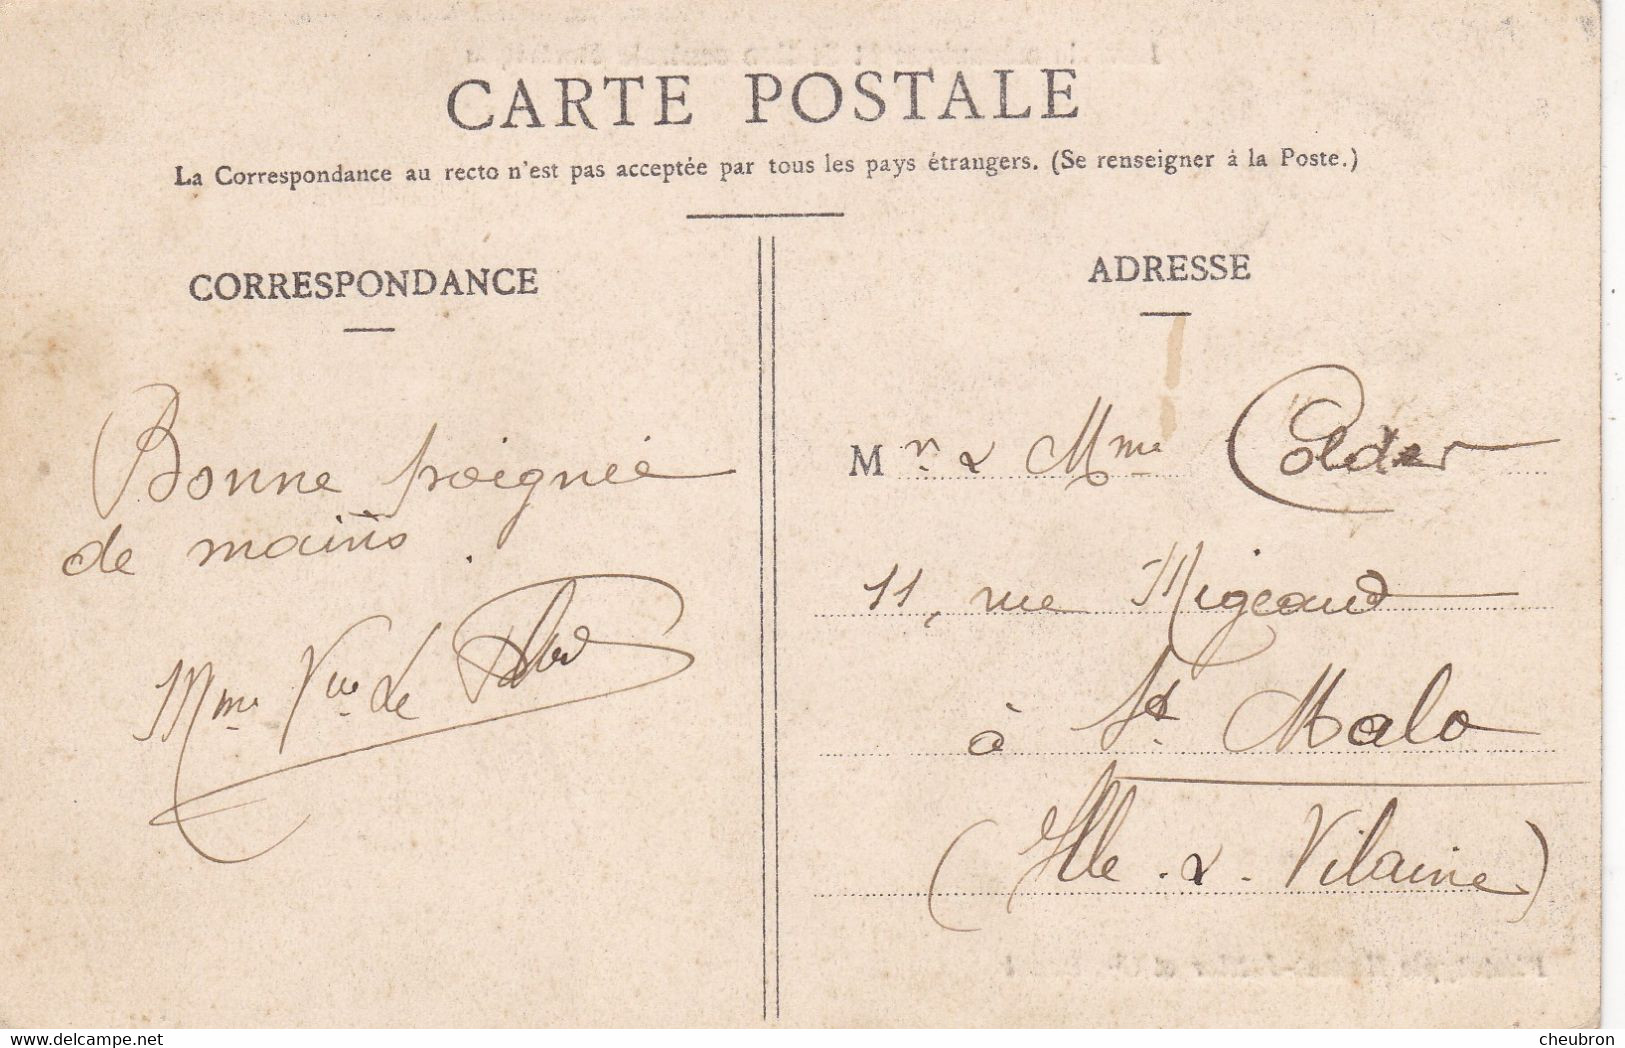 CARTE POSTALE
La Correspondance au recto n'est pas acceptée par tous les pays étrangers. (Se renseigner à la Poste.)
CORRESPONDANCE
Bonne poignée
de mains.
Mme Vve Le
ADRESSE
Mr. & Mme Colder
11, rue Migeaud
à St. Malo
(Ille-&-Vilaine)
www.delcampe.net
cheubron